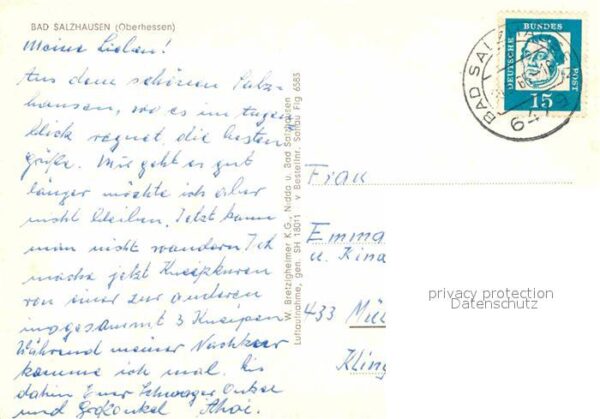 BAD SALZHAUSEN (Oberhessen)
Meine Lieben!
Aus dem schönen Salz-
hausen, wo es im Augen
blick regnet, die besten
grüße. Mir geht es gut
länger möchte ich aber
nicht bleiben. Jetzt kann
man nicht wandern Ich
mache jetzt Kneipkuren
von einer zur anderen
insgesammt 3 Kneipen
Während meiner Nachkur
komme ich mal. Bis
dahin Euer Schwager Onkel
und Großonkel Ahoi.
W. Bretzigheimer K.G., Nidda u. Bad Salzhausen
Luftaufnahme, gen. SH 18011 v Bestellnr. Saltau Flg 6585
DEUTSCHE BUNDES POST
15
BAD SAL
Frau
Emma
u. Kina
433 Mül
Kling
privacy protection
Datenschutz